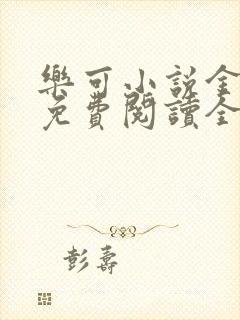 樂可小説全
免費閱讀全
彭壽